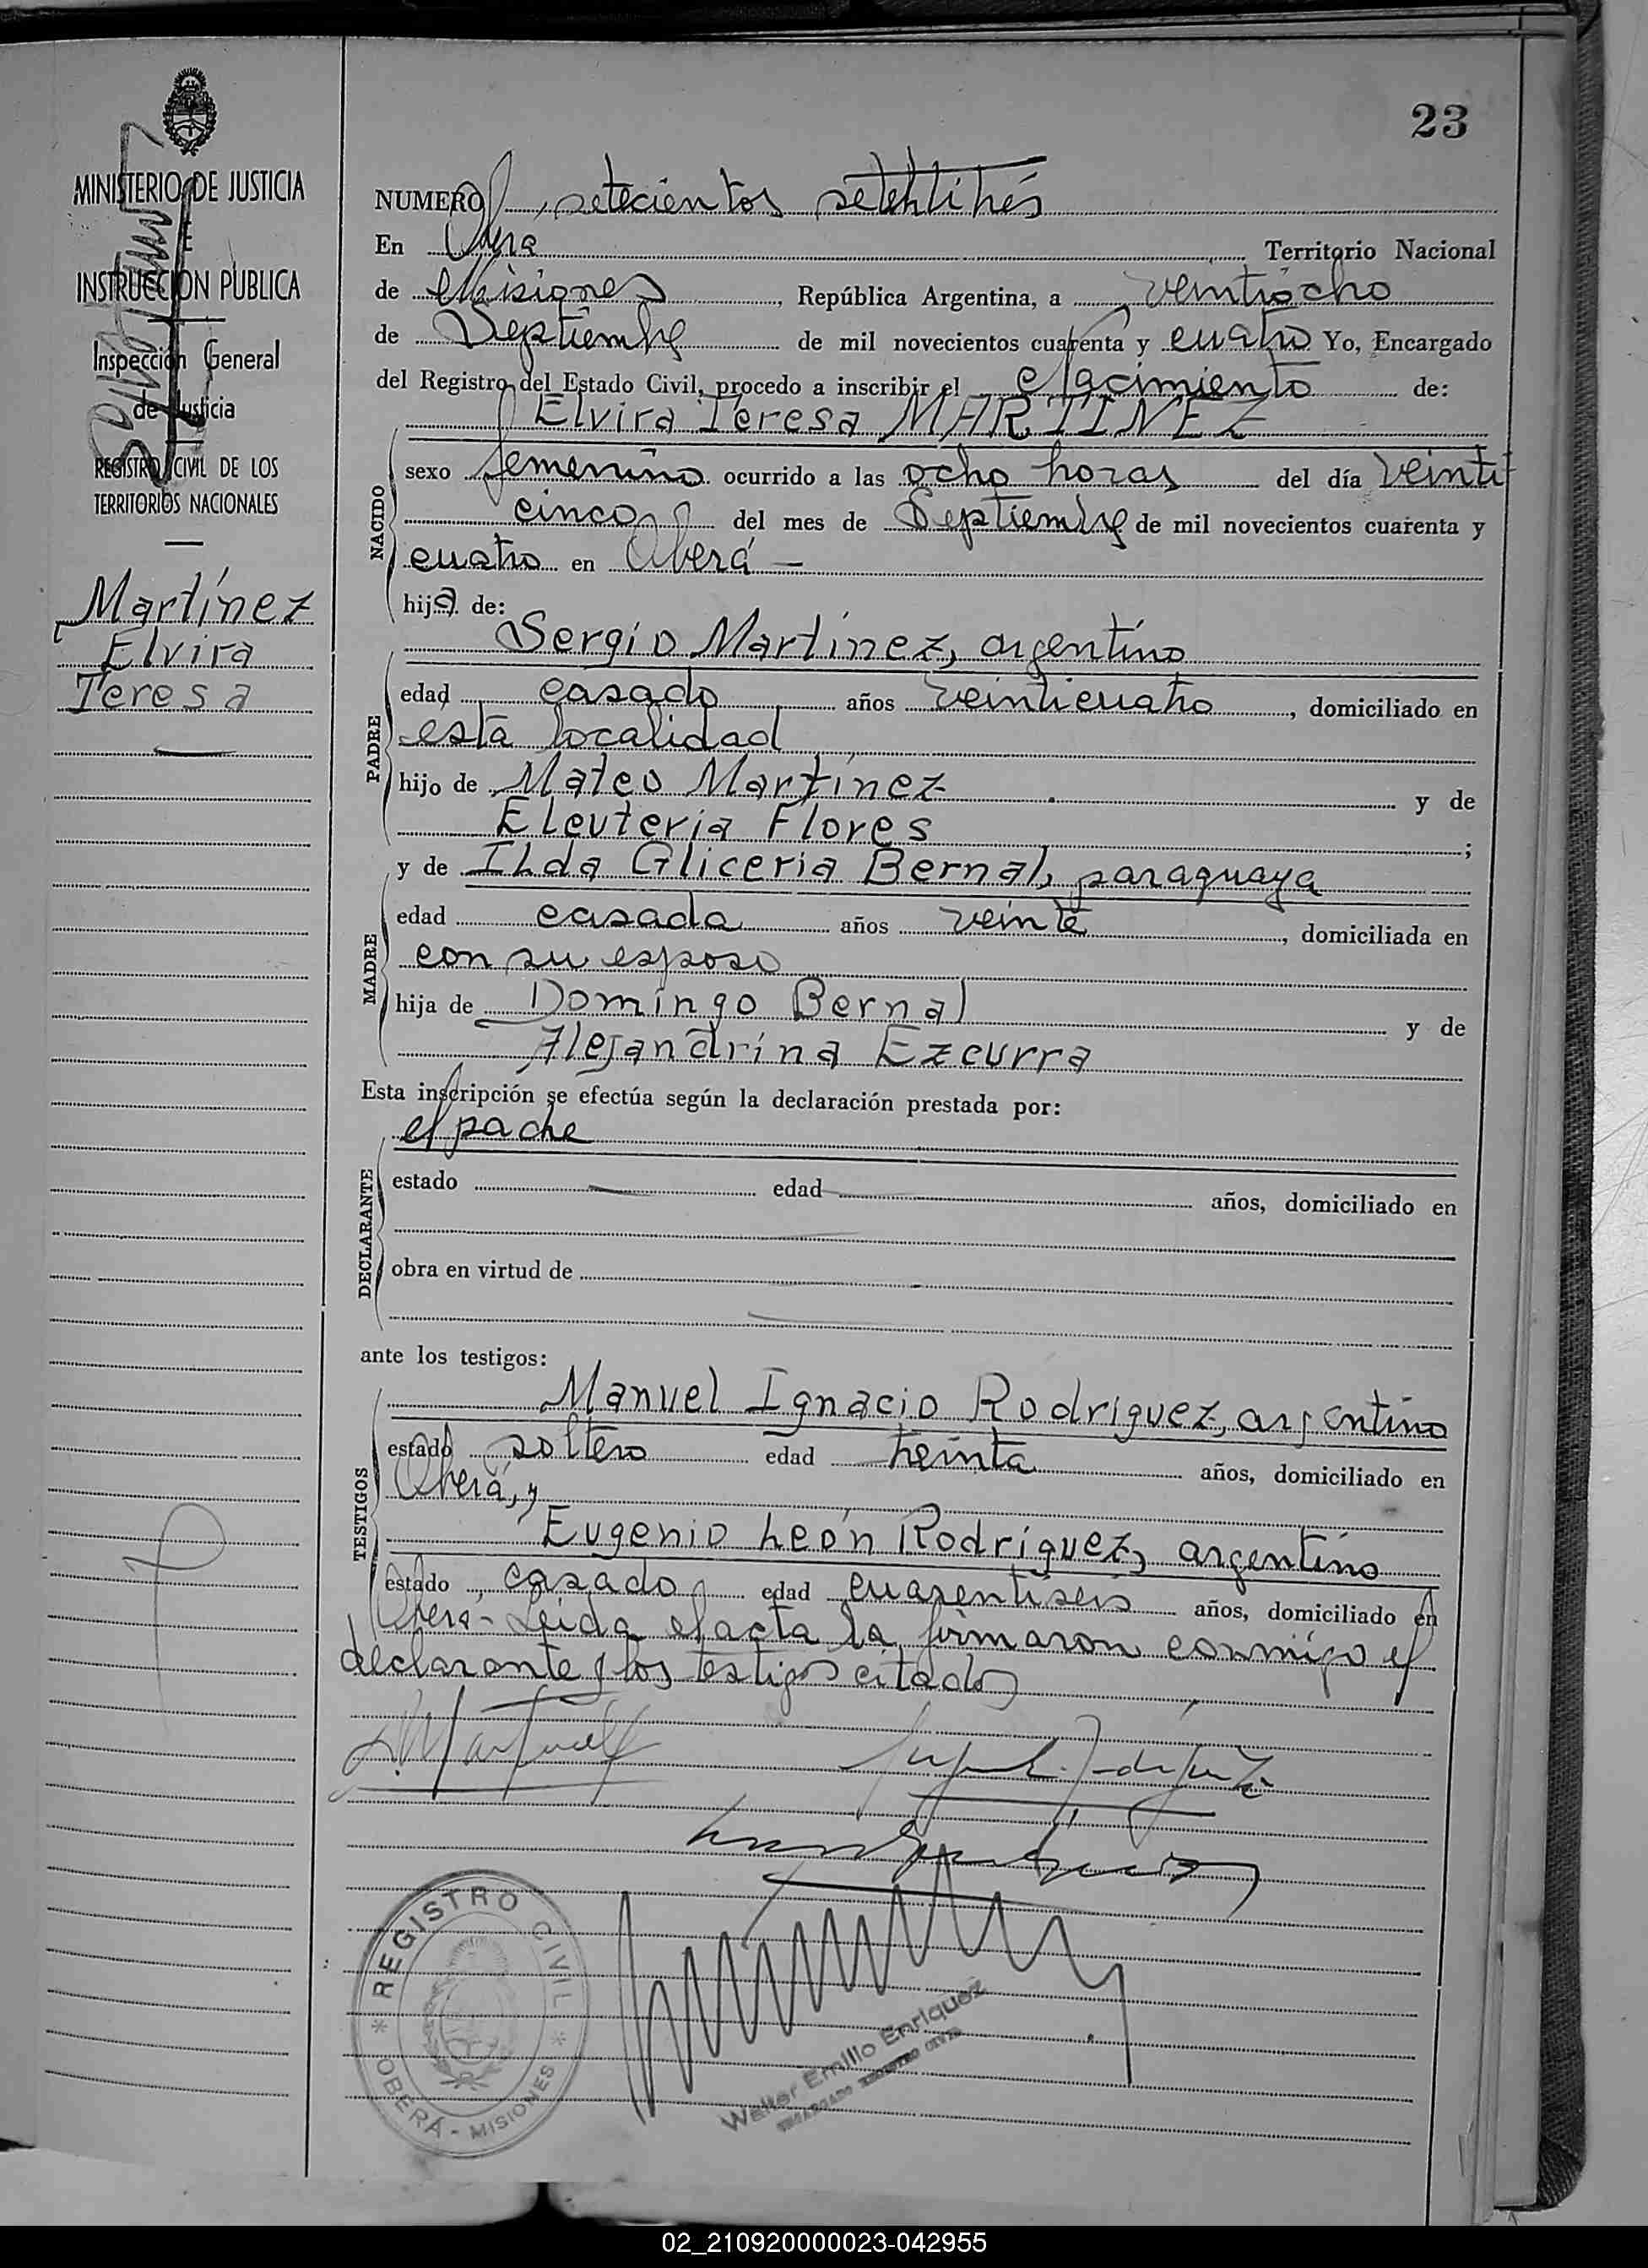 23
MINISTERIO DE JUSTICIA
E
INSTRUCCION PUBLICA
Inspección General
de Justicia
REGISTRO CIVIL DE LOS
TERRITORIOS NACIONALES
Martínez
Elvira
Teresa
NUMERO setecientos setentitrés
En Oberá Territorio Nacional
de Misiones, República Argentina, a veintiocho
de Septiembre de mil novecientos cuarenta y cuatro Yo, Encargado
del Registro del Estado Civil, procedo a inscribir el Nacimiento de:
Elvira Teresa MARTINEZ
NACIDO
sexo femenino ocurrido a las ocho horas del día veinti
cinco del mes de Septiembre de mil novecientos cuarenta y
cuatro en Oberá —
hija de:
Sergio Martínez, argentino
PADRE
edad casado años veinticuatro, domiciliado en
esta localidad
hijo de Mateo Martínez y de
Eleuteria Flores ;
y de Ilda Gliceria Bernal, paraguaya
MADRE
edad casada años veinte, domiciliada en
con su esposo
hija de Domingo Bernal y de
Alejandrina Ezcurra
Esta inscripción se efectúa según la declaración prestada por:
el padre
DECLARANTE
estado — edad años, domiciliado en
obra en virtud de
ante los testigos:
Manuel Ignacio Rodriguez, argentino
TESTIGOS
estado soltero edad treinta años, domiciliado en
Oberá, y
Eugenio León Rodríguez, argentino
estado casado edad cuarentiseis años, domiciliado en
Oberá - Leida el acta la firmaron conmigo el
declarante y los testigos citados
REGISTRO CIVIL
* OBERÁ - MISIONES *
Walter Emilio Enriquez
ENCARGADO REGISTRO CIVIL
02_210920000023-042955